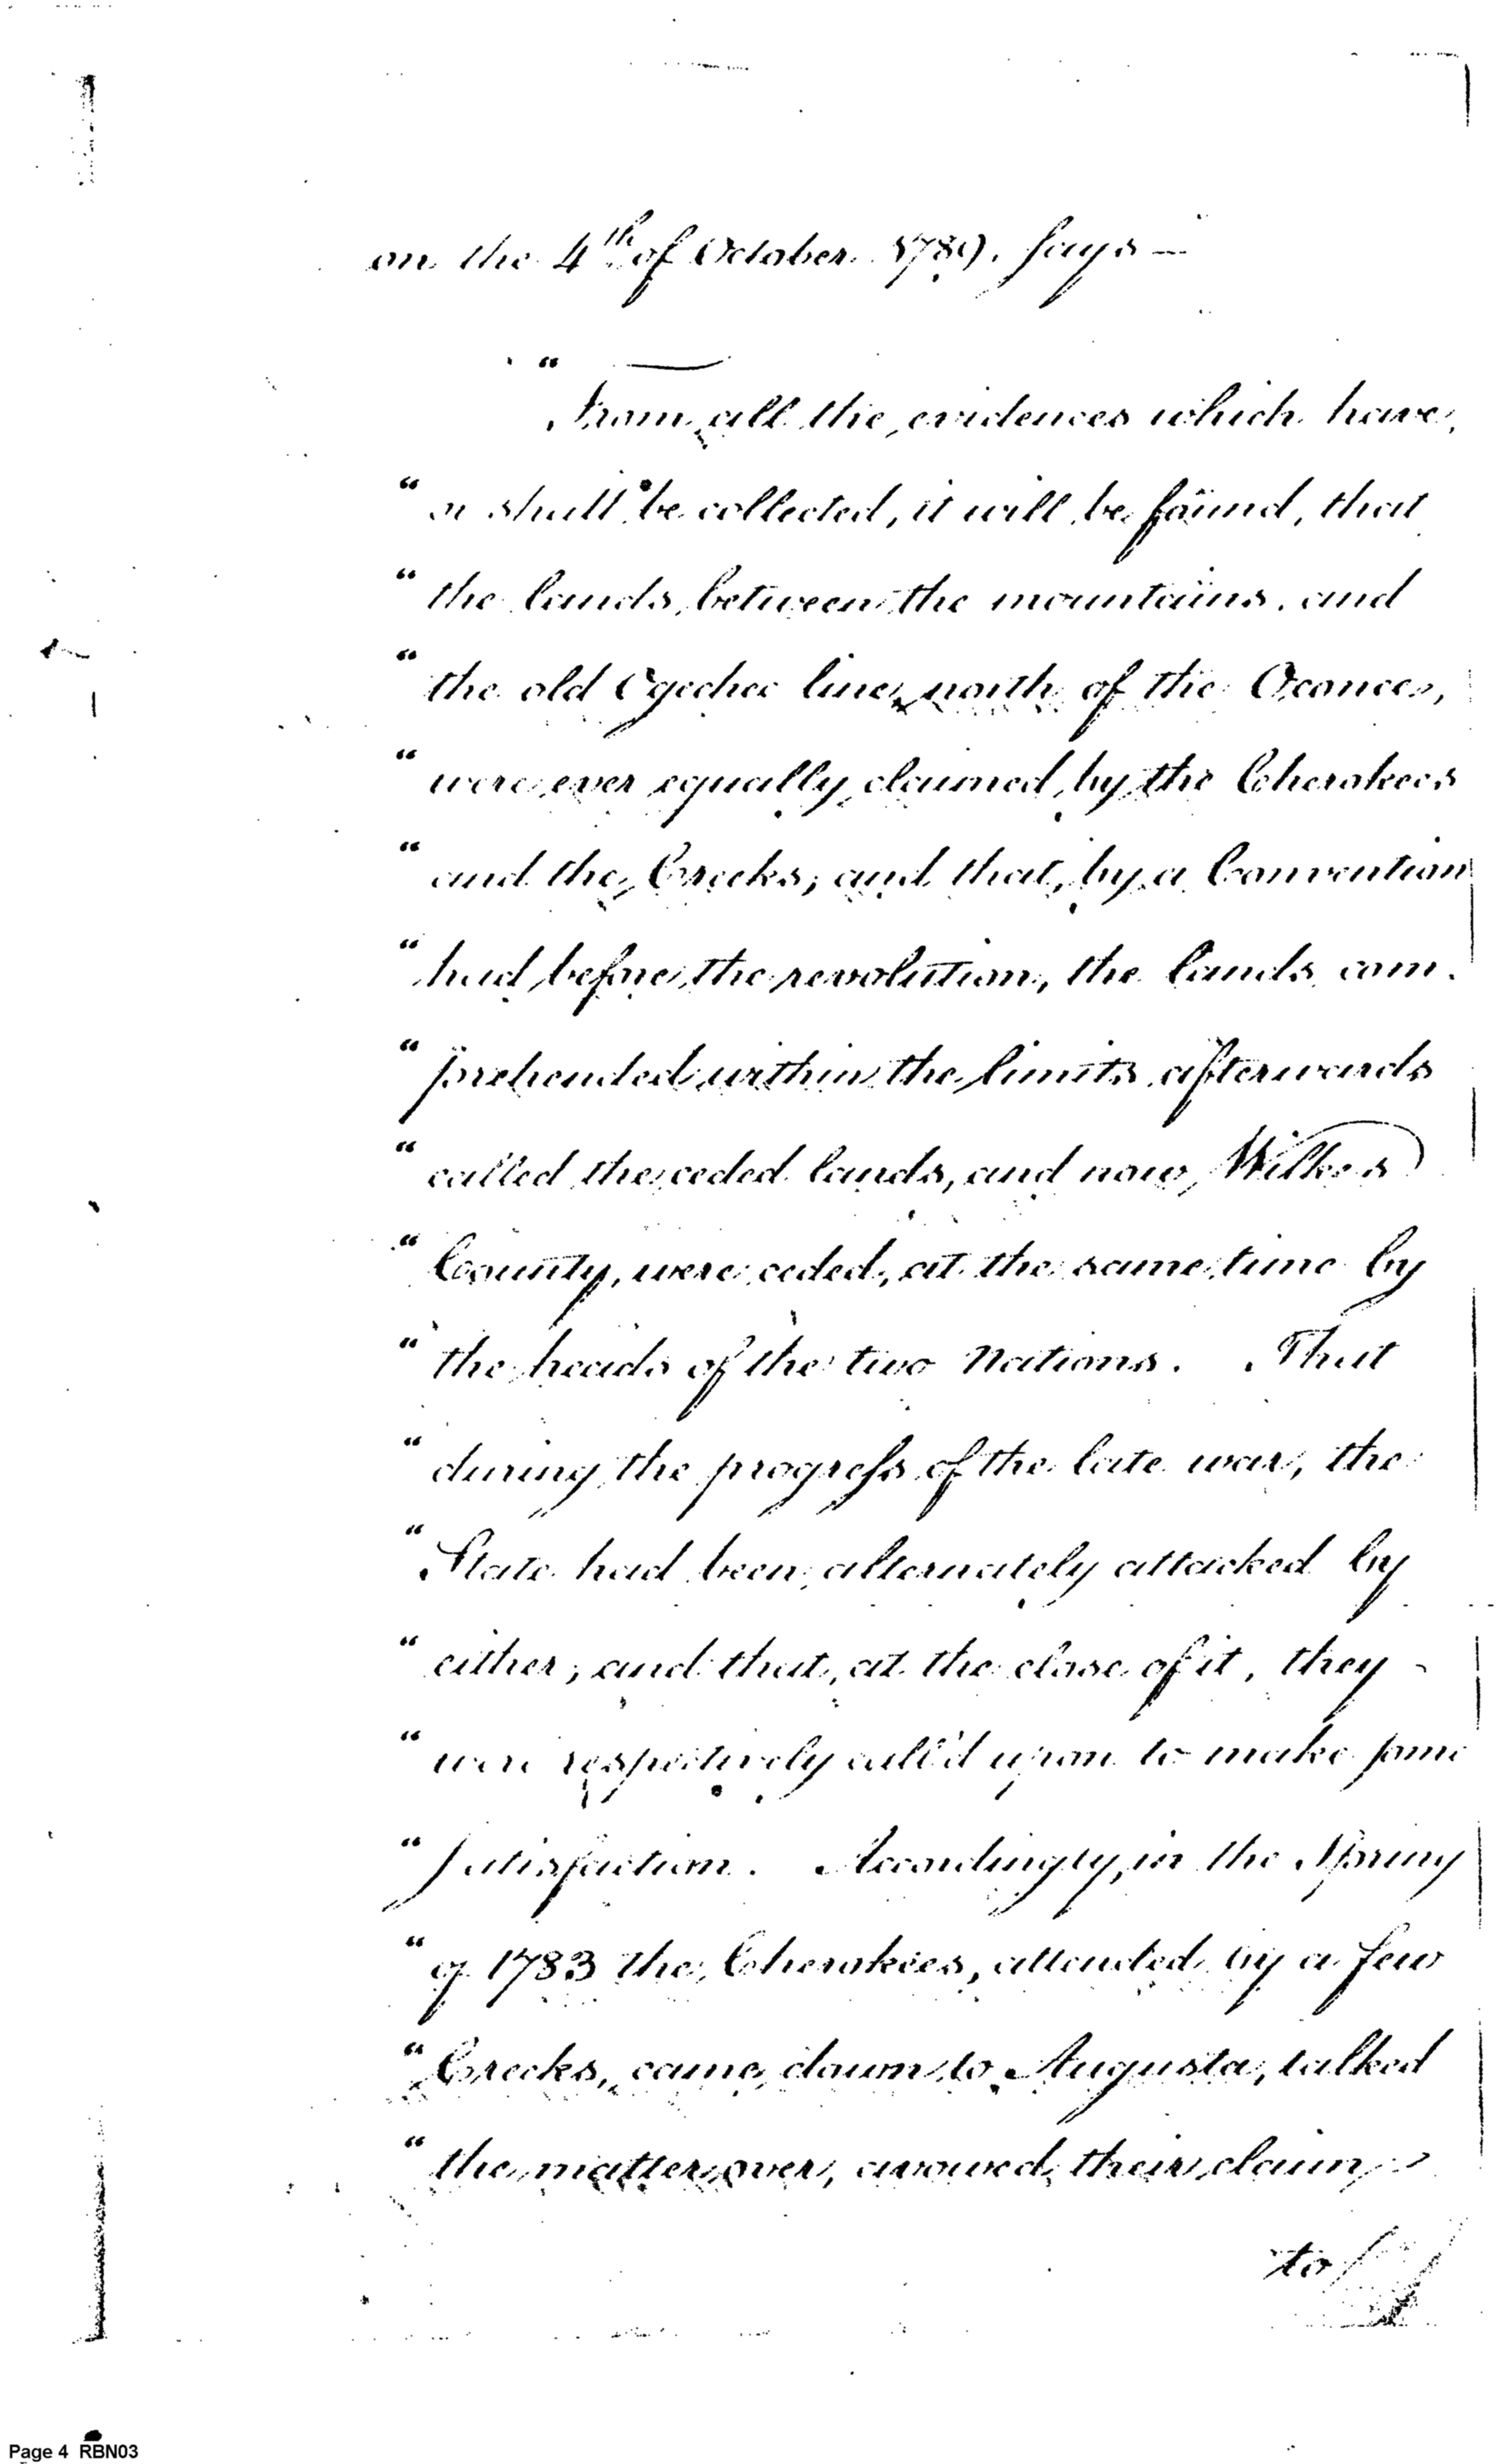 on the 4th of October 1789. says —
“ From all the evidences which have,
“ or shall be collected, it will be found, that
“ the lands, between the mountains, and
“ the old Ogechee line, north of the Oconees,
“ were ever equally claimed, by the Cherokees
“ and the Creeks, and that, by a Convention
“ had before the revolution, the lands com-
“ prehended within the limits afterwards
“ called the ceded lands, and now Wilkes
“ County, were ceded, at the same time by
“ the heads of the two Nations. That
“ during the progress of the late war, the
“ State had been alternately attacked by
“ either; and that, at the close of it, they
“ were respectively call'd upon to make some
“ satisfaction. Accordingly, in the Spring
“ of 1783 the Cherokees, attended by a few
“ Creeks, came down to Augusta, talked
“ the matter over, avowed their claim
to
Page 4 RBN03